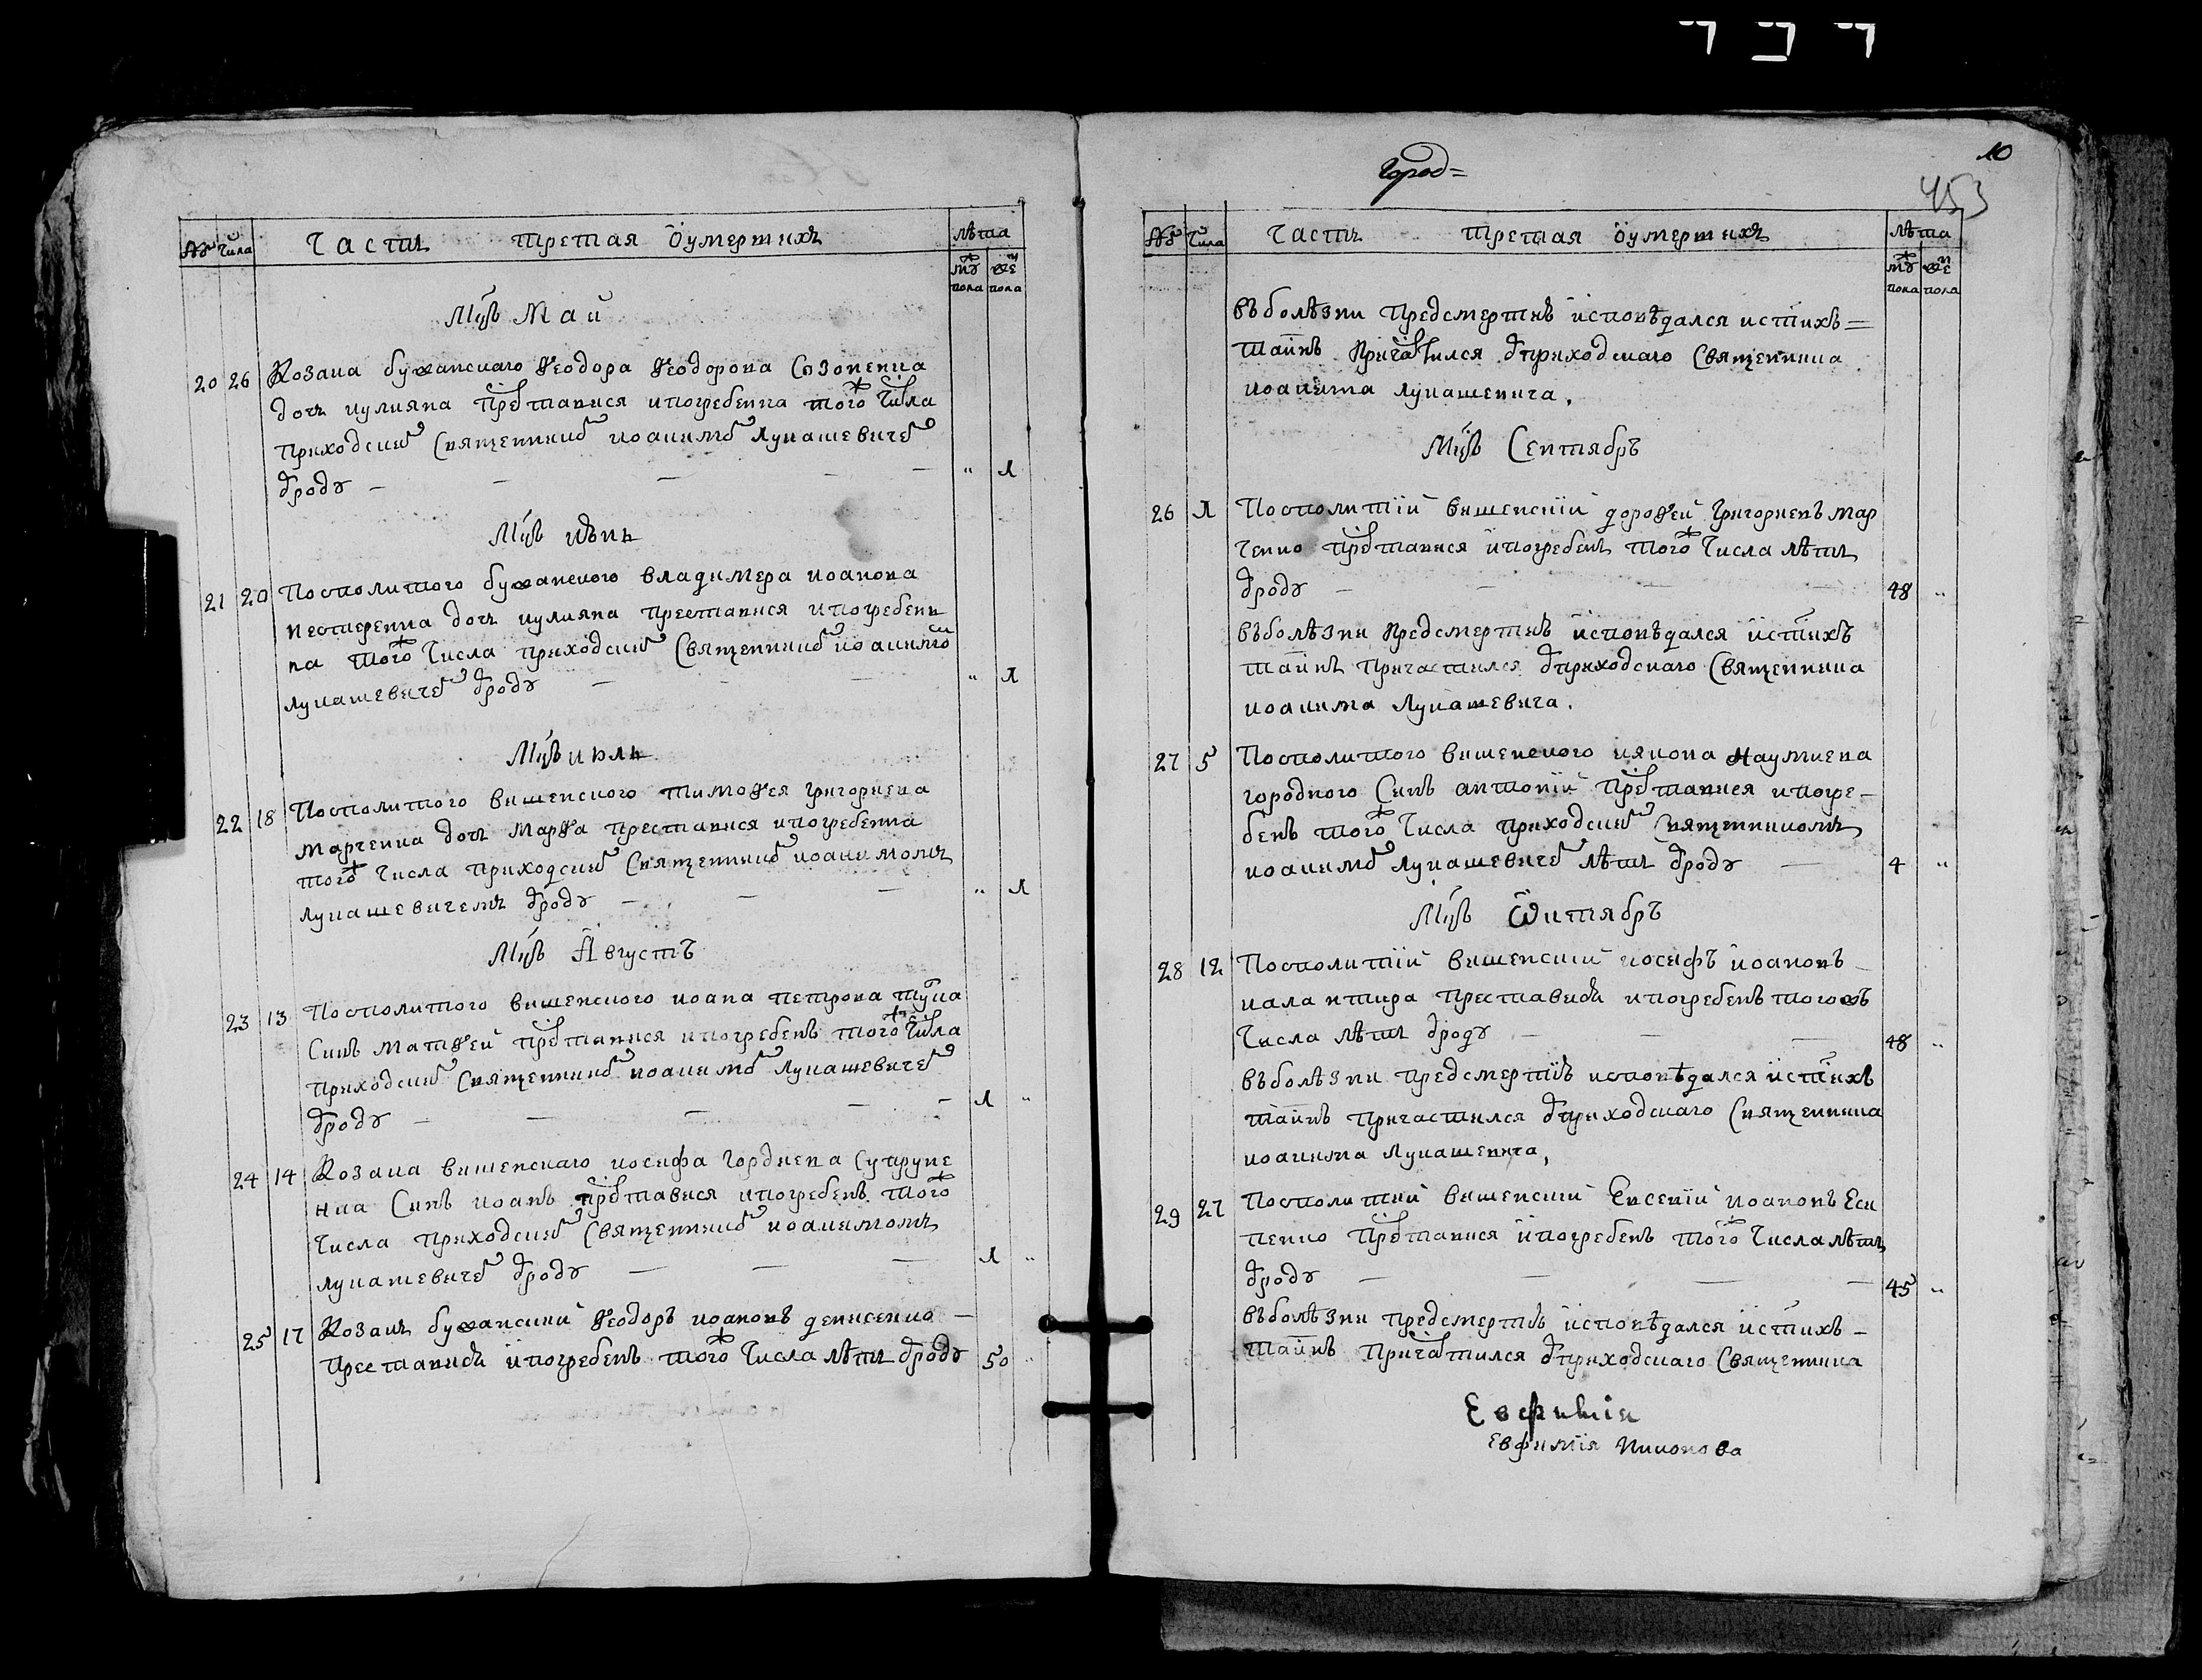 № Числа Часть третая о умершихъ лѣта
муж пола жен пола
Мцъ Май
20 26 Козака бужанскаго Ѳеодора Ѳеодорова Созоненка
дочь иулияна преставися и погребенна того ж числа
приходским священником иоакимом Лукашевичем
от роду — — — — — „ 1
Мцъ июнь
21 20 Посполитого бужанского владимера иоанова
нестеренка дочь иулияна преставися и погребен
на того ж числа приходским священником иоакимом
лукашевичем от роду — — — „ 1
Мцъ июль
22 18 Посполитого вишенского тимоѳея григориева
марченка дочь марѳа преставися и погребенна
того ж числа приходским священником иоакимомъ
лукашевичемъ от роду — — — „ 1
Мцъ Августъ
23 13 Посполитого вишенского иоана петрова
Синъ матѳей преставися и погребенъ того ж числа
приходским священником иоакимом Лукашевичем
от роду — — — — — 1 „
24 14 Козака вишенскаго иосифа гордиева Супруне
нка Синъ иоанъ преставися и погребенъ того ж
числа приходским священником иоакимомъ
лукашевичем от роду — — — 1 „
25 17 Козакъ бужанский Ѳеодоръ иоановъ денисенко —
преставися и погребенъ того ж числа лѣтъ от роду 50 „
Город=
10
453
№ Числа Часть третая о умершихъ лѣта
муж пола жен пола
въ болѣзни предсмертнѣ исповѣдался и с тихъ=
таинъ причастился от приходскаго священника
иоакима лукашевича.
Мцъ Септябръ
26 1 Посполитий вишенский дороѳей григориевъ мар
ченко преставися и погребенъ того ж числа лѣтъ
от роду — — — — 48 „
въ болѣзни предсмертнѣ исповѣдался и с тихъ
таинъ причастился от приходскаго священника
иоакима Лукашевича.
27 5 Посполитого вишенского иякова наумиева
городного Синъ антоний преставися и погре-
бенъ того ж числа приходским священникомъ
иоакимом лукашевичем лѣтъ от роду — 4 „
Мцъ Ѡктябръ
28 12 Посполитий вишенский иосифъ иоановъ —
калантира преставися и погребенъ того жъ
числа лѣтъ от роду — — — 48 „
въ болѣзни предсмертнѣ исповѣдался и с тихъ
таинъ причастился от приходскаго священника
иоакима лукашевича,
29 27 Посполитий вишенский Евсений иоановъ Еси
пенко преставися и погребенъ того ж числа лѣтъ
от роду — — — — 45 „
въ болѣзни предсмертнѣ исповѣдался и с тихъ —
таинъ причастился от приходскаго священника
Евфимія
Евфимія